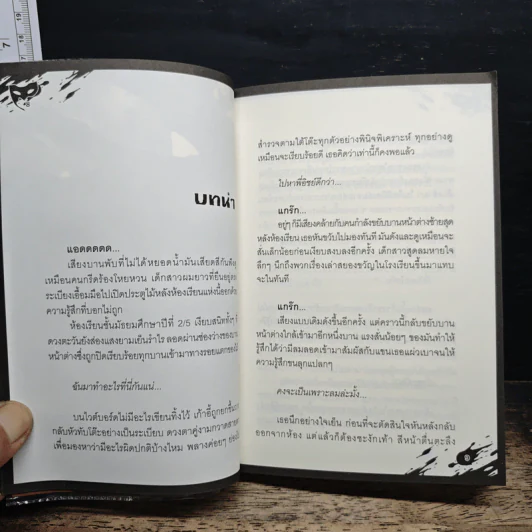 บทนำ
แอดดดดด...
เสียงบานพับที่ไม่ได้หยอดน้ำมันเสียดสีกันดัง
เหมือนคนกรีดร้องโหยหวน เด็กสาวผมยาวที่ยืนอยู่ตรง
ระเบียงเอื้อมมือไปเปิดประตูไม้หลังห้องเรียนแห่งนี้ออกด้วย
ความรู้สึกที่บอกไม่ถูก
ห้องเรียนชั้นมัธยมศึกษาปีที่ 2/5 เงียบสนิททั้งๆ
ดวงตะวันยังส่องแสงยามเย็นรำไร ลอดผ่านช่องว่างของบาน
หน้าต่างซึ่งถูกปิดเรียบร้อยทุกบานเข้ามาทางรอยแตกของ
ฉันมาทำอะไรที่นี่กันแน่...
บนไวต์บอร์ดไม่มีอะไรเขียนทิ้งไว้ เก้าอี้ถูกยกขึ้น
กลับหัวทับโต๊ะอย่างเป็นระเบียบ ดวงตาคู่งามกวาดสาย
เพื่อมองหาว่ามีอะไรผิดปกติบ้างไหม พลางค่อยๆ ก้ม
สำรวจตามใต้โต๊ะทุกตัวอย่างพินิจพิเคราะห์ ทุกอย่างดู
เหมือนจะเรียบร้อยดี เธอคิดว่าเท่านี้ก็คงพอแล้ว
ไปหาพี่อิชย์ดีกว่า...
แกร๊ก...
อยู่ๆ ก็มีเสียงคล้ายกับคนกำลังขยับบานหน้าต่างซ้ายสุด
หลังห้องเรียน เธอหันขวับไปมองทันที มันดังและดูเหมือนจะ
สั่นเล็กน้อยก่อนเงียบสงบลงอีกครั้ง เด็กสาวสูดลมหายใจ
ลึกๆ นึกถึงพวกเรื่องเล่าสยองขวัญในโรงเรียนขึ้นมาแทบ
จะในทันที
แกร๊ก...
เสียงแบบเดิมดังขึ้นอีกครั้ง แต่คราวนี้กลับขยับบาน
หน้าต่างใกล้เข้ามาอีกหนึ่งบาน แรงสั่นน้อยๆ ของมันทำให้
รู้สึกได้ว่ามีลมลอดเข้ามาสัมผัสกับแขนเธอแผ่วเบาจนให้
ความรู้สึกขนลุกแปลกๆ
คงจะเป็นเพราะลมล่ะมั้ง...
เธอนึกอย่างใจเย็น ก่อนที่จะตัดสินใจหันหลังกลับ
ออกจากห้อง แต่แล้วก็ต้องชะงักเท้า สีหน้าตื่นตะลึง